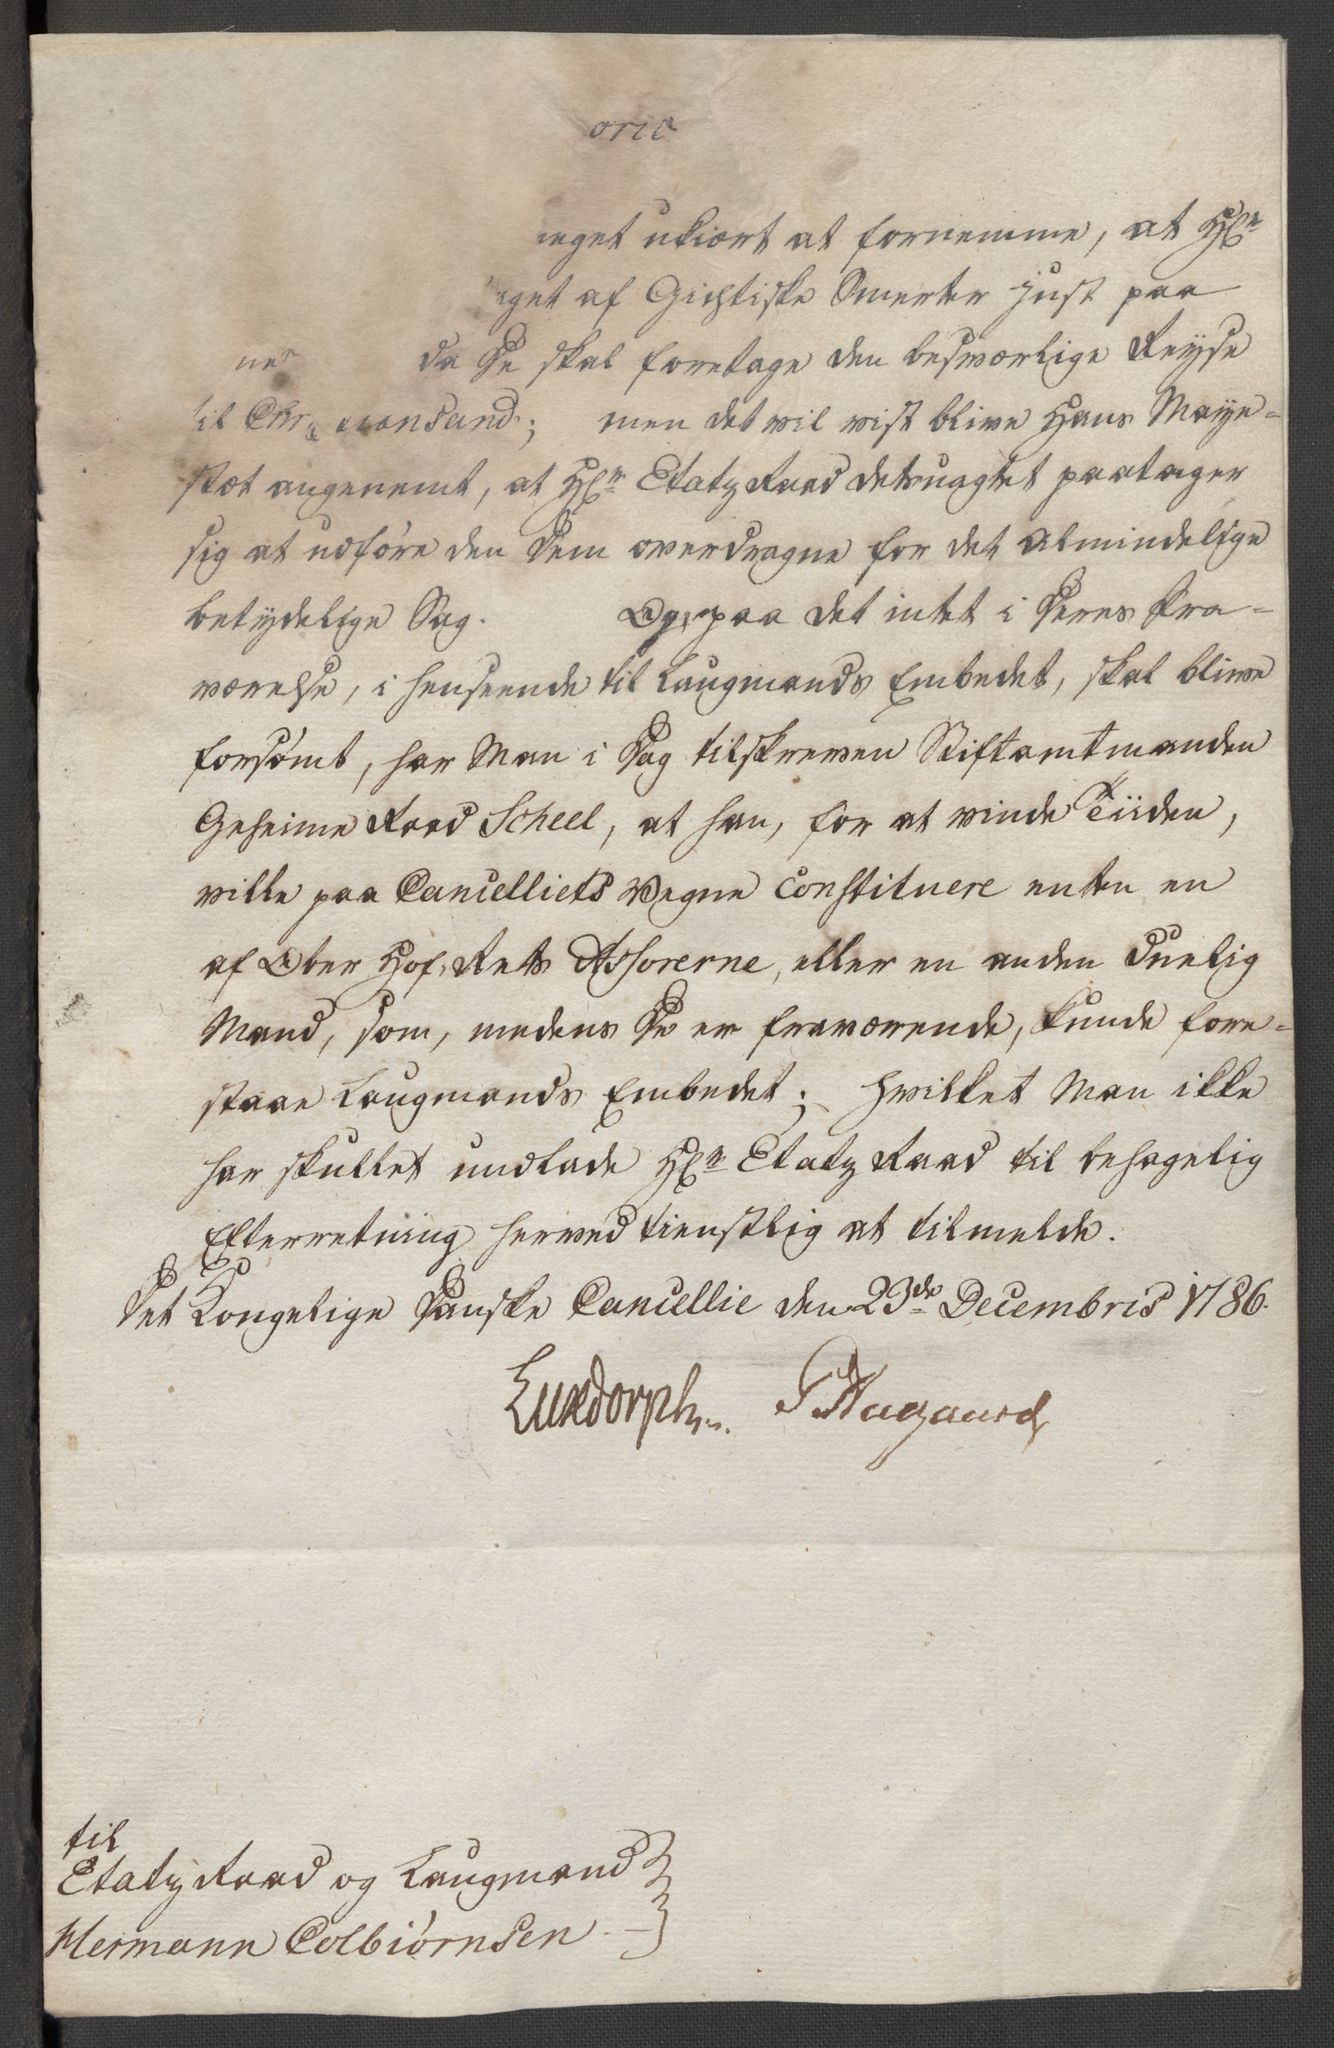 meget ukiært at fornemme, at Hr
aget af Gichtiske Smerter just paa
da De skal foretage den besværlige Reyse
til Christiansand; men det vil vist blive Hans Maye=
stæt angenemt, at Hr Etatz Raad desuagtet paatager
sig at udføre den Dem overdragne for det almindelige
betydelige Sag. Og, paa det intet i Deres Fra=
værelse, i henseende til Laugmands Embedet, skal blive
forsømt, har Man i Dag tilskreven Stiftamtmanden
Geheime Raad Scheel, at han, for at vinde Tiiden,
ville paa Cancelliets Vegne constituere enten en
af Ober Hof-Rets Assorerne, eller en anden duelig
Mand, som, medens De er fraværende, kunde fore=
staae Laugmands Embedet; hvilket Man ikke
har skullet undlade Hr Etatz Raad til behagelig
Efterretning herved tienstlig at tilmelde.
Det Kongelige Danske Cancellie den 23de Decembris 1786.
Luxdorph. Aagaard
til
Etatz Raad og Laugmand
Hermann Colbiørnsen